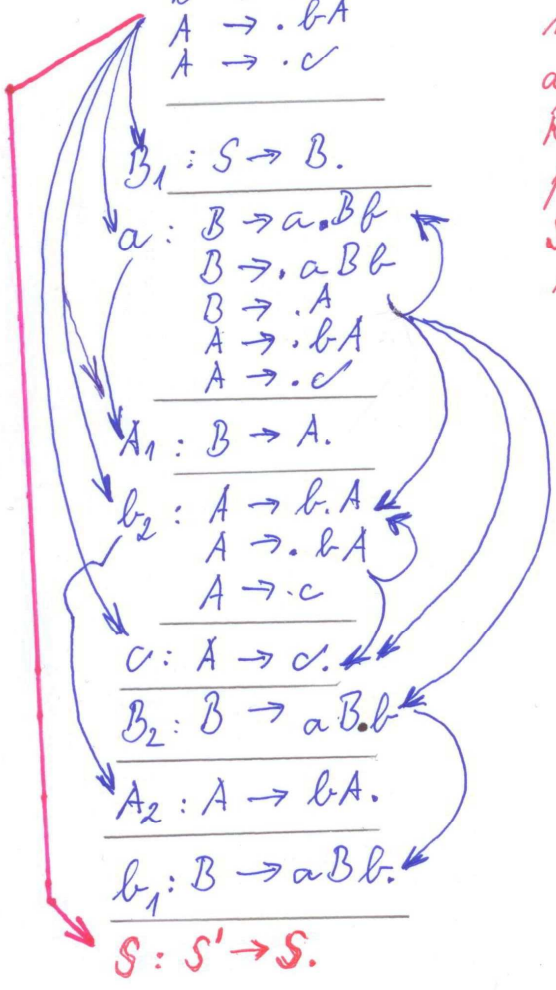 A → . bA
A → . c
B₁ : S → B.
a : B → a.Bb
B → . aBb
B → . A
A → . bA
A → . c
A₁ : B → A.
b₂ : A → b.A
A → . bA
A → . c
c : A → c.
B₂ : B → aB.b
A₂ : A → bA.
b₁ : B → aBb.
S : S' → S.